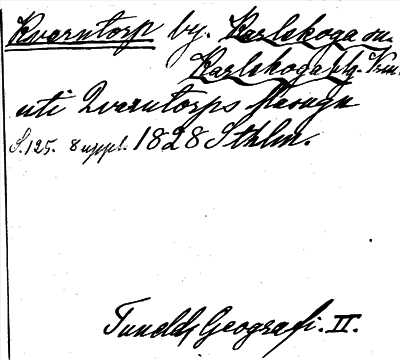 Kverntorp by. Karlskoga sn.
Karlskoga bg. Krm.
uti Qverntorps Masugn
S. 125. 8 uppl. 1828 Sthlm.
Tunelds Geografi. II.